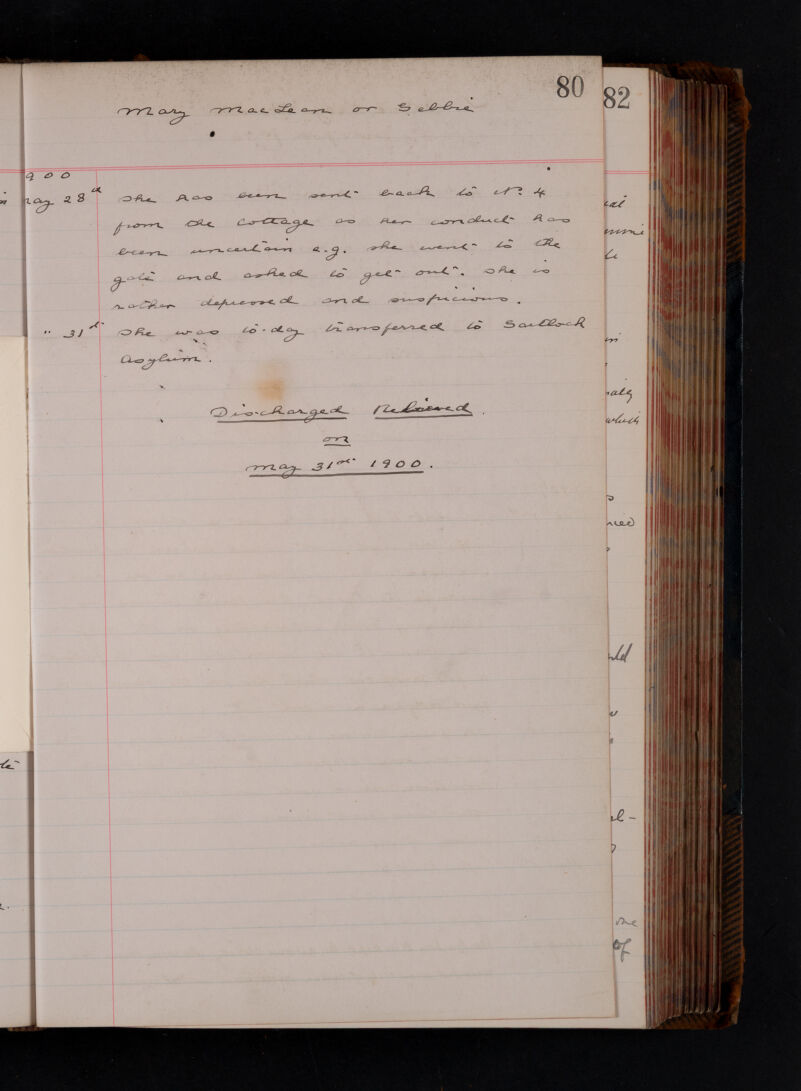 80
82
Mary MacLean or Gebbie
900
May 28th She has been sent back to No. 4
from the cottage as her conduct has
been uncertain e.g. she went to the
gate and asked to get out. She is
rather depressed and suspicious.
" 31st She was to-day transferred to Gartloch
Asylum.
Discharged Relieved.
on
May 31st 1900.
which
of